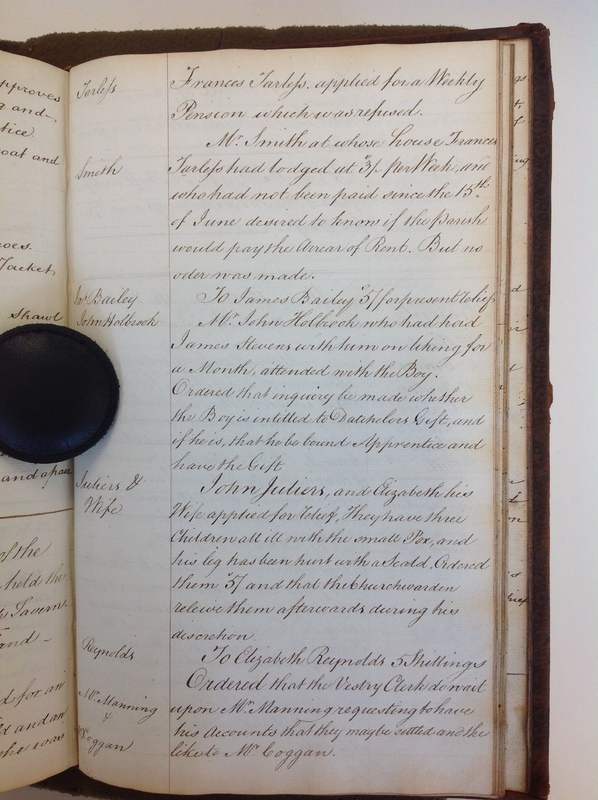 pproves
g and-,
tice
oat and
oes.
Jacket,
Shawl
and a pair
of the
held the
Tavern.
and -
d for an
d and an
who was
Torless
Frances Tarless. applied for a Weekly
Pension which was refused.
Mr. Smith at whose house Frances
Smith
Tarless had lodged at 3/- per Week, and
who had not been paid since the 15th
of June desired to know if the Parish
would pay the Arrear of Rent. But no
oder was made.
Jas Bailey
To James Bailey 5/ for present relief
John Holbrook
Mr. John Holbrook who had had
James Stevens with him on liking for
a Month, attended with the Boy.
Ordered that inquiry be made whether
the Boy is intitled to Datchelors Gift, and
if he is, that he be bound Apprentice and
have the Gift
Juliers &
Wife
John Juliers, and Elizabeth his
Wife applied for relief, They have three
Children all ill with the small Pox, and
his leg has been hurt with a Scald. Ordered
them 5/ and that the Churchwarden
releive them afterwards during his
discretion.
Reynolds
To Elizabeth Reynolds 5 Shillings
Ordered that the Vestry Clerk do wait
Mr. Manning
&
Coggan
upon Mr. Manning requesting to have
his Accounts that they may be settled and the
like to Mr. Coggan.